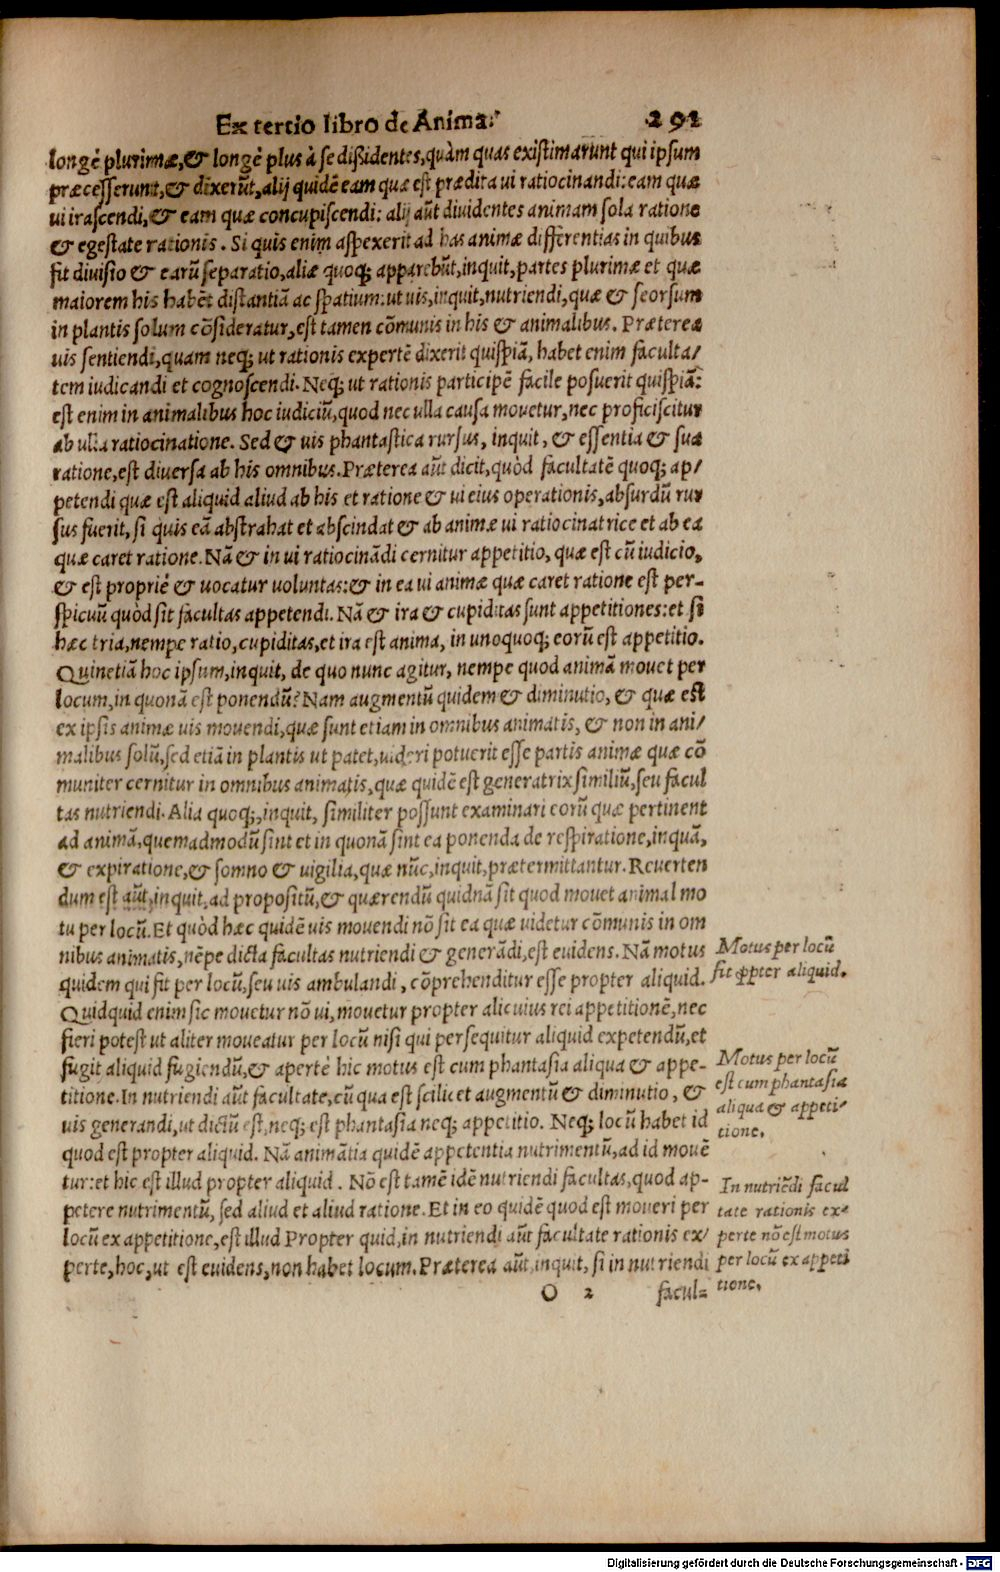 Ex tertio libro de Anima. 291
longè plurimæ,& longè plus à se dißidentes,quàm quas existimarunt qui ipsum
præcesserunt,& dixerūt,alij quidē eam quæ est prædita ui ratiocinandi:eam quæ
ui irascendi,& eam quæ concupiscendi: alij aūt diuidentes animam sola ratione
& egestate rationis. Si quis enim aspexerit ad has animæ differentias in quibus
fit diuisio & earū separatio,aliæ quoq; apparebūt,inquit,partes plurimæ et quæ
maiorem his habēt distantiā ac spatium:ut uis,inquit,nutriendi,quæ & seorsum
in plantis solum cōsideratur,est tamen cōmunis in his & animalibus. Præterea
uis sentiendi,quam neq; ut rationis expertē dixerit quispiā, habet enim faculta/
tem iudicandi et cognoscendi. Neq; ut rationis participē facile posuerit quispiā:
est enim in animalibus hoc iudiciū,quod nec ulla causa mouetur,nec proficiscitur
ab ulla ratiocinatione. Sed & uis phantastica rursus, inquit, & essentia & sua
ratione,est diuersa ab his omnibus.Præterea aūt dicit,quòd facultatē quoq; ap/
petendi quæ est aliquid aliud ab his et ratione & ui eius operationis,absurdū rur
sus fuerit, si quis eā abstrahat et abscindat & ab animæ ui ratiocinatrice et ab ea
quæ caret ratione. Nā & in ui ratiocināndi cernitur appetitio, quæ est cū iudicio,
& est propriè & uocatur uoluntas:& in ea ui animæ quæ caret ratione est per-
spicuū quòd sit facultas appetendi. Nā & ira & cupiditas sunt appetitiones:et si
hæc tria,nempe ratio,cupiditas,et ira est anima, in unoquoq; eorū est appetitio.
Quinetiā hoc ipsum,inquit, de quo nunc agitur, nempe quod animā mouet per
locum,in quonā est ponendū? Nam augmentū quidem & diminutio, & quæ est
ex ipsis animæ uis mouendi,quæ sunt etiam in omnibus animatis, & non in ani/
malibus solū,sed etiā in plantis ut patet,uideri potuerit esse partis animæ quæ cō
muniter cernitur in omnibus animatis,quæ quidē est generatrix similiū,seu facul
tas nutriendi. Alia quoq;,inquit, similiter possunt examinari eorū quæ pertinent
ad animā,quemadmodū sint et in quonā sint ea ponenda de respiratione,inquā,
& expiratione,& somno & uigilia,quæ nūc,inquit,prætermittantur. Reuerten
dum est aūt,inquit,ad propositū,& quærendū quidnā sit quod mouet animal mo
tu per locū. Et quòd hæc quidē uis mouendi nō sit ea quæ uidetur cōmunis in om
nibus animatis,nēpe dicta facultas nutriendi & generādi,est euidens. Nā motus
quidem qui fit per locū,seu uis ambulandi, cōprehenditur esse propter aliquid.
Quidquid enim sic mouetur nō ui,mouetur propter alicuius rei appetitionē,nec
fieri potest ut aliter moueatur per locū nisi qui persequitur aliquid expetendū,et
fugit aliquid fugiendū,& apertè hic motus est cum phantasia aliqua & appe-
titione. In nutriendi aūt facultate,cū qua est scilicet augmentū & diminutio, &
uis generandi,ut dictū est,neq; est phantasia neq; appetitio. Neq; locū habet id
quod est propter aliquid. Nā animātia quidē appetentia nutrimentū,ad id mouē
tur:et hic est illud propter aliquid. Nō est tamē idē nutriendi facultas,quod ap-
petere nutrimentū, sed aliud et aliud ratione. Et in eo quidē quod est moueri per
locū ex appetitione,est illud Propter quid,in nutriendi aūt facultate rationis ex/
perte,hoc,ut est euidens,non habet locum. Præterea aūt,inquit, si in nutriendi
O 2 facul=
Motus per locū
fit ꝓpter aliquid.
Motus per locū
est cum phantasia
aliqua & appeti/
tione.
In nutriēdi facul
tate rationis ex-
perte nō est motus
per locū ex appeti
tione.
Digitalisierung gefördert durch die Deutsche Forschungsgemeinschaft - DFG